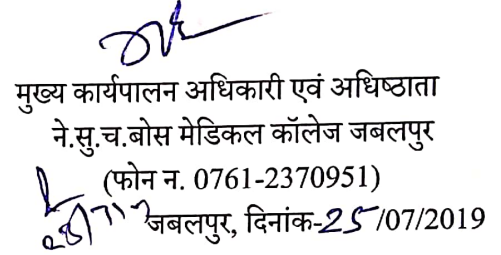 मुख्य कार्यपालन अधिकारी एवं अधिष्ठाता
ने.सु.च.बोस मेडिकल कॉलेज जबलपुर
(फोन न. 0761-2370951)
जबलपुर, दिनांक-25/07/2019